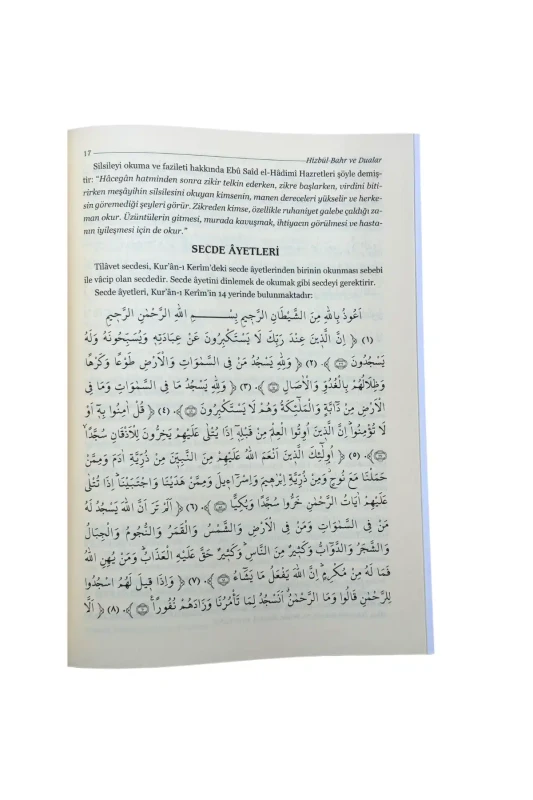 17
Hizbül-Bahr ve Dualar
Silsileyi okuma ve fazileti hakkında Ebû Saîd el-Hâdimî Hazretleri şöyle demiş-
tir: “Hâcegân hatminden sonra zikir telkin ederken, zikre başlarken, virdini biti-
rirken meşâyihin silsilesini okuyan kimsenin, manen dereceleri yükselir ve herke-
sin göremediği şeyleri görür. Zikreden kimse, özellikle ruhaniyet galebe çaldığı za-
man okur. Üzüntülerin gitmesi, murada kavuşmak, ihtiyacın görülmesi ve hasta-
nın iyileşmesi için de okur.”
SECDE ÂYETLERİ
Tilâvet secdesi, Kur’ân-ı Kerîm’deki secde âyetlerinden birinin okunması sebebi
ile vâcip olan secdedir. Secde âyetini dinlemek de okumak gibi secdeyi gerektirir.
Secde âyetleri, Kur’ân-ı Kerîm’in 14 yerinde bulunmaktadır:
اَعُوذُ بِاللّٰهِ مِنَ الشَّيْطَانِ الرَّجِيمِ بِسْمِ اللّٰهِ الرَّحْمٰنِ الرَّحِيمِ
(١) ﴿ اِنَّ الَّذِينَ عِنْدَ رَبِّكَ لَا يَسْتَكْبِرُونَ عَنْ عِبَادَتِهِ وَيُسَبِّحُونَهُ وَلَهُ
يَسْجُدُونَ ﴾. (٢) ﴿ وَلِلّٰهِ يَسْجُدُ مَنْ فِى السَّمٰوَاتِ وَالْاَرْضِ طَوْعًا وَكَرْهًا
وَظِلَالُهُمْ بِالْغُدُوِّ وَالْاٰصَالِ ﴾. (٣) ﴿ وَلِلّٰهِ يَسْجُدُ مَا فِى السَّمٰوَاتِ وَمَا فِى
الْاَرْضِ مِنْ دَابَّةٍ وَالْمَلٰئِكَةُ وَهُمْ لَا يَسْتَكْبِرُونَ ﴾. (٤) ﴿ قُلْ اٰمِنُوا بِهِ اَوْ
لَا تُؤْمِنُوا اِنَّ الَّذِينَ اُوتُوا الْعِلْمَ مِنْ قَبْلِهِ اِذَا يُتْلٰى عَلَيْهِمْ يَخِرُّونَ لِلْاَذْقَانِ سُجَّدًا
﴾. (٥) ﴿ اُولٰئِكَ الَّذِينَ اَنْعَمَ اللّٰهُ عَلَيْهِمْ مِنَ النَّبِيِّينَ مِنْ ذُرِّيَّةِ اٰدَمَ وَمِمَّنْ
حَمَلْنَا مَعَ نُوحٍ وَمِنْ ذُرِّيَّةِ اِبْرٰهِيمَ وَاِسْرَاءِيلَ وَمِمَّنْ هَدَيْنَا وَاجْتَبَيْنَا اِذَا تُتْلٰى
عَلَيْهِمْ اٰيَاتُ الرَّحْمٰنِ خَرُّوا سُجَّدًا وَبُكِيًّا ﴾. (٦) ﴿ اَلَمْ تَرَ اَنَّ اللّٰهَ يَسْجُدُ لَهُ
مَنْ فِى السَّمٰوَاتِ وَمَنْ فِى الْاَرْضِ وَالشَّمْسُ وَالْقَمَرُ وَالنُّجُومُ وَالْجِبَالُ
وَالشَّجَرُ وَالدَّوَابُّ وَكَثِيرٌ مِنَ النَّاسِ وَكَثِيرٌ حَقَّ عَلَيْهِ الْعَذَابُ وَمَنْ يُهِنِ اللّٰهُ
فَمَا لَهُ مِنْ مُكْرِمٍ اِنَّ اللّٰهَ يَفْعَلُ مَا يَشَاءُ ﴾. (٧) ﴿ وَاِذَا قِيلَ لَهُمُ اسْجُدُوا
لِلرَّحْمٰنِ قَالُوا وَمَا الرَّحْمٰنُ اَنَسْجُدُ لِمَا تَأْمُرُنَا وَزَادَهُمْ نُفُورًا ﴾. (٨) ﴿ اَلَّا